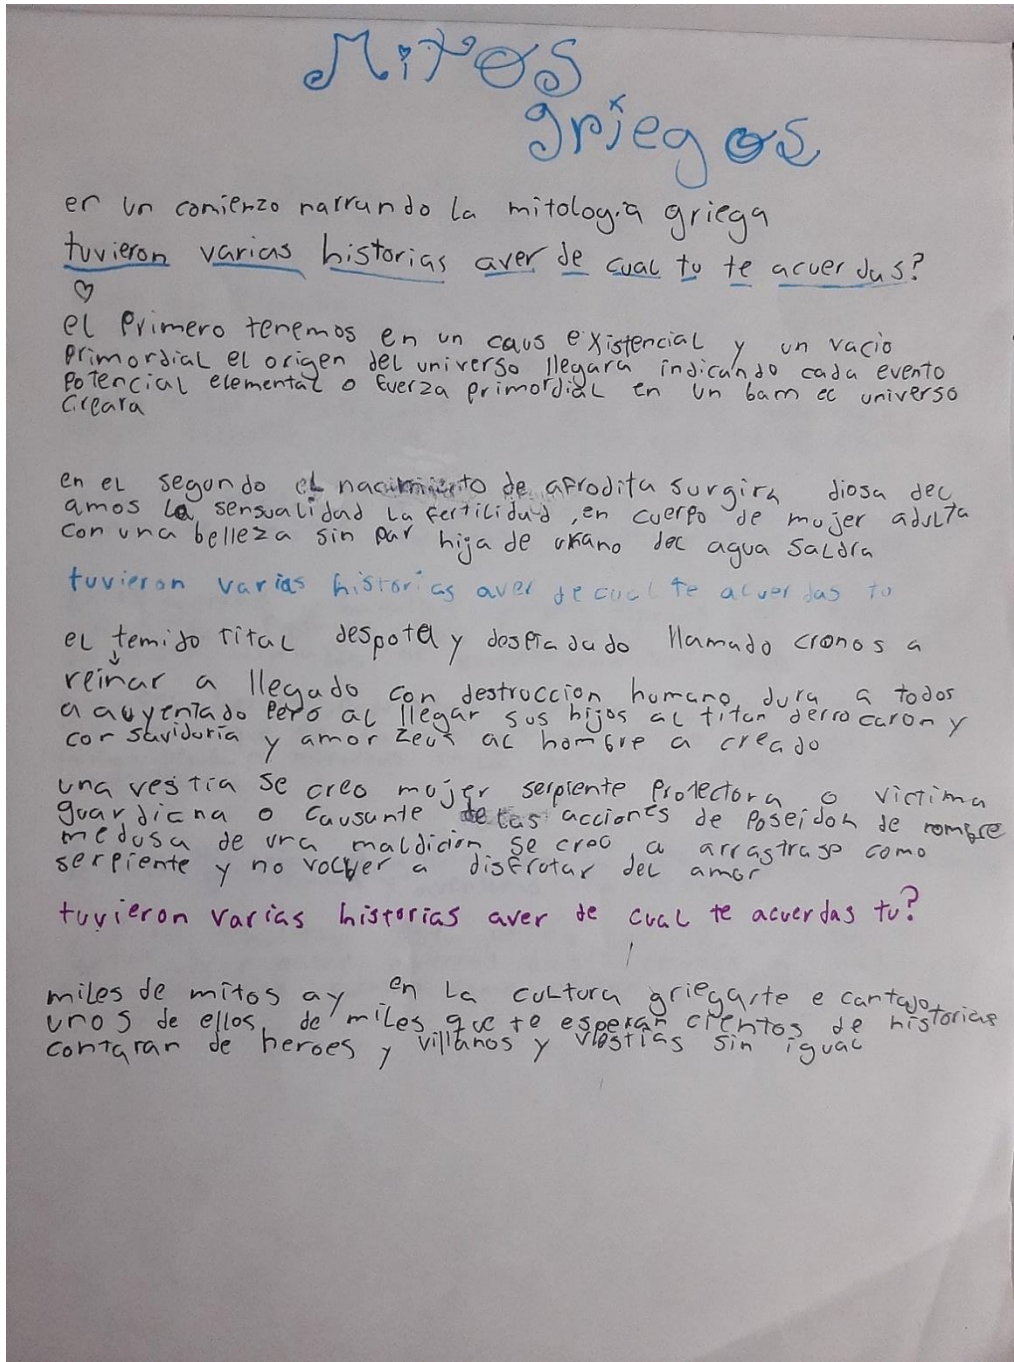 Mitos
griegos
en un comienzo narrando la mitología griega
tuvieron varias historias aver de cual tu te acuerdas?
el Primero tenemos en un caus existencial y un vacio
Primordial el origen del universo llegara indicando cada evento
Potencial elemental o fuerza primordial en un bam el universo
Creara
en el segundo el nacimiento de afrodita surgira diosa del
amos la sensualidad la fertilidad, en cuerpo de mujer adulta
con una belleza sin par hija de urano del agua saldra
tuvieron varias historias aver de cual te acuerdas tu
el temido tital despota y despiadado llamado cronos a
reinar a llegado con destruccion humano dura a todos
a auyentado pero al llegar sus hijos al titan derrocaron y
con saviduria y amor Zeus al hombre a creado
una vestia se creo mujer serpiente Protectora o victima
guardiana o causante de las acciones de Poseidon de nombre
medusa de una maldición se creo a arrastrase como
serpiente y no volver a disfrutar del amor
tuvieron varias historias aver de cual te acuerdas tu?
miles de mitos ay en la cultura griega te e cantado
unos de ellos, de miles que te esperan cientos de historias
contaran de heroes y villanos y vestias sin igual